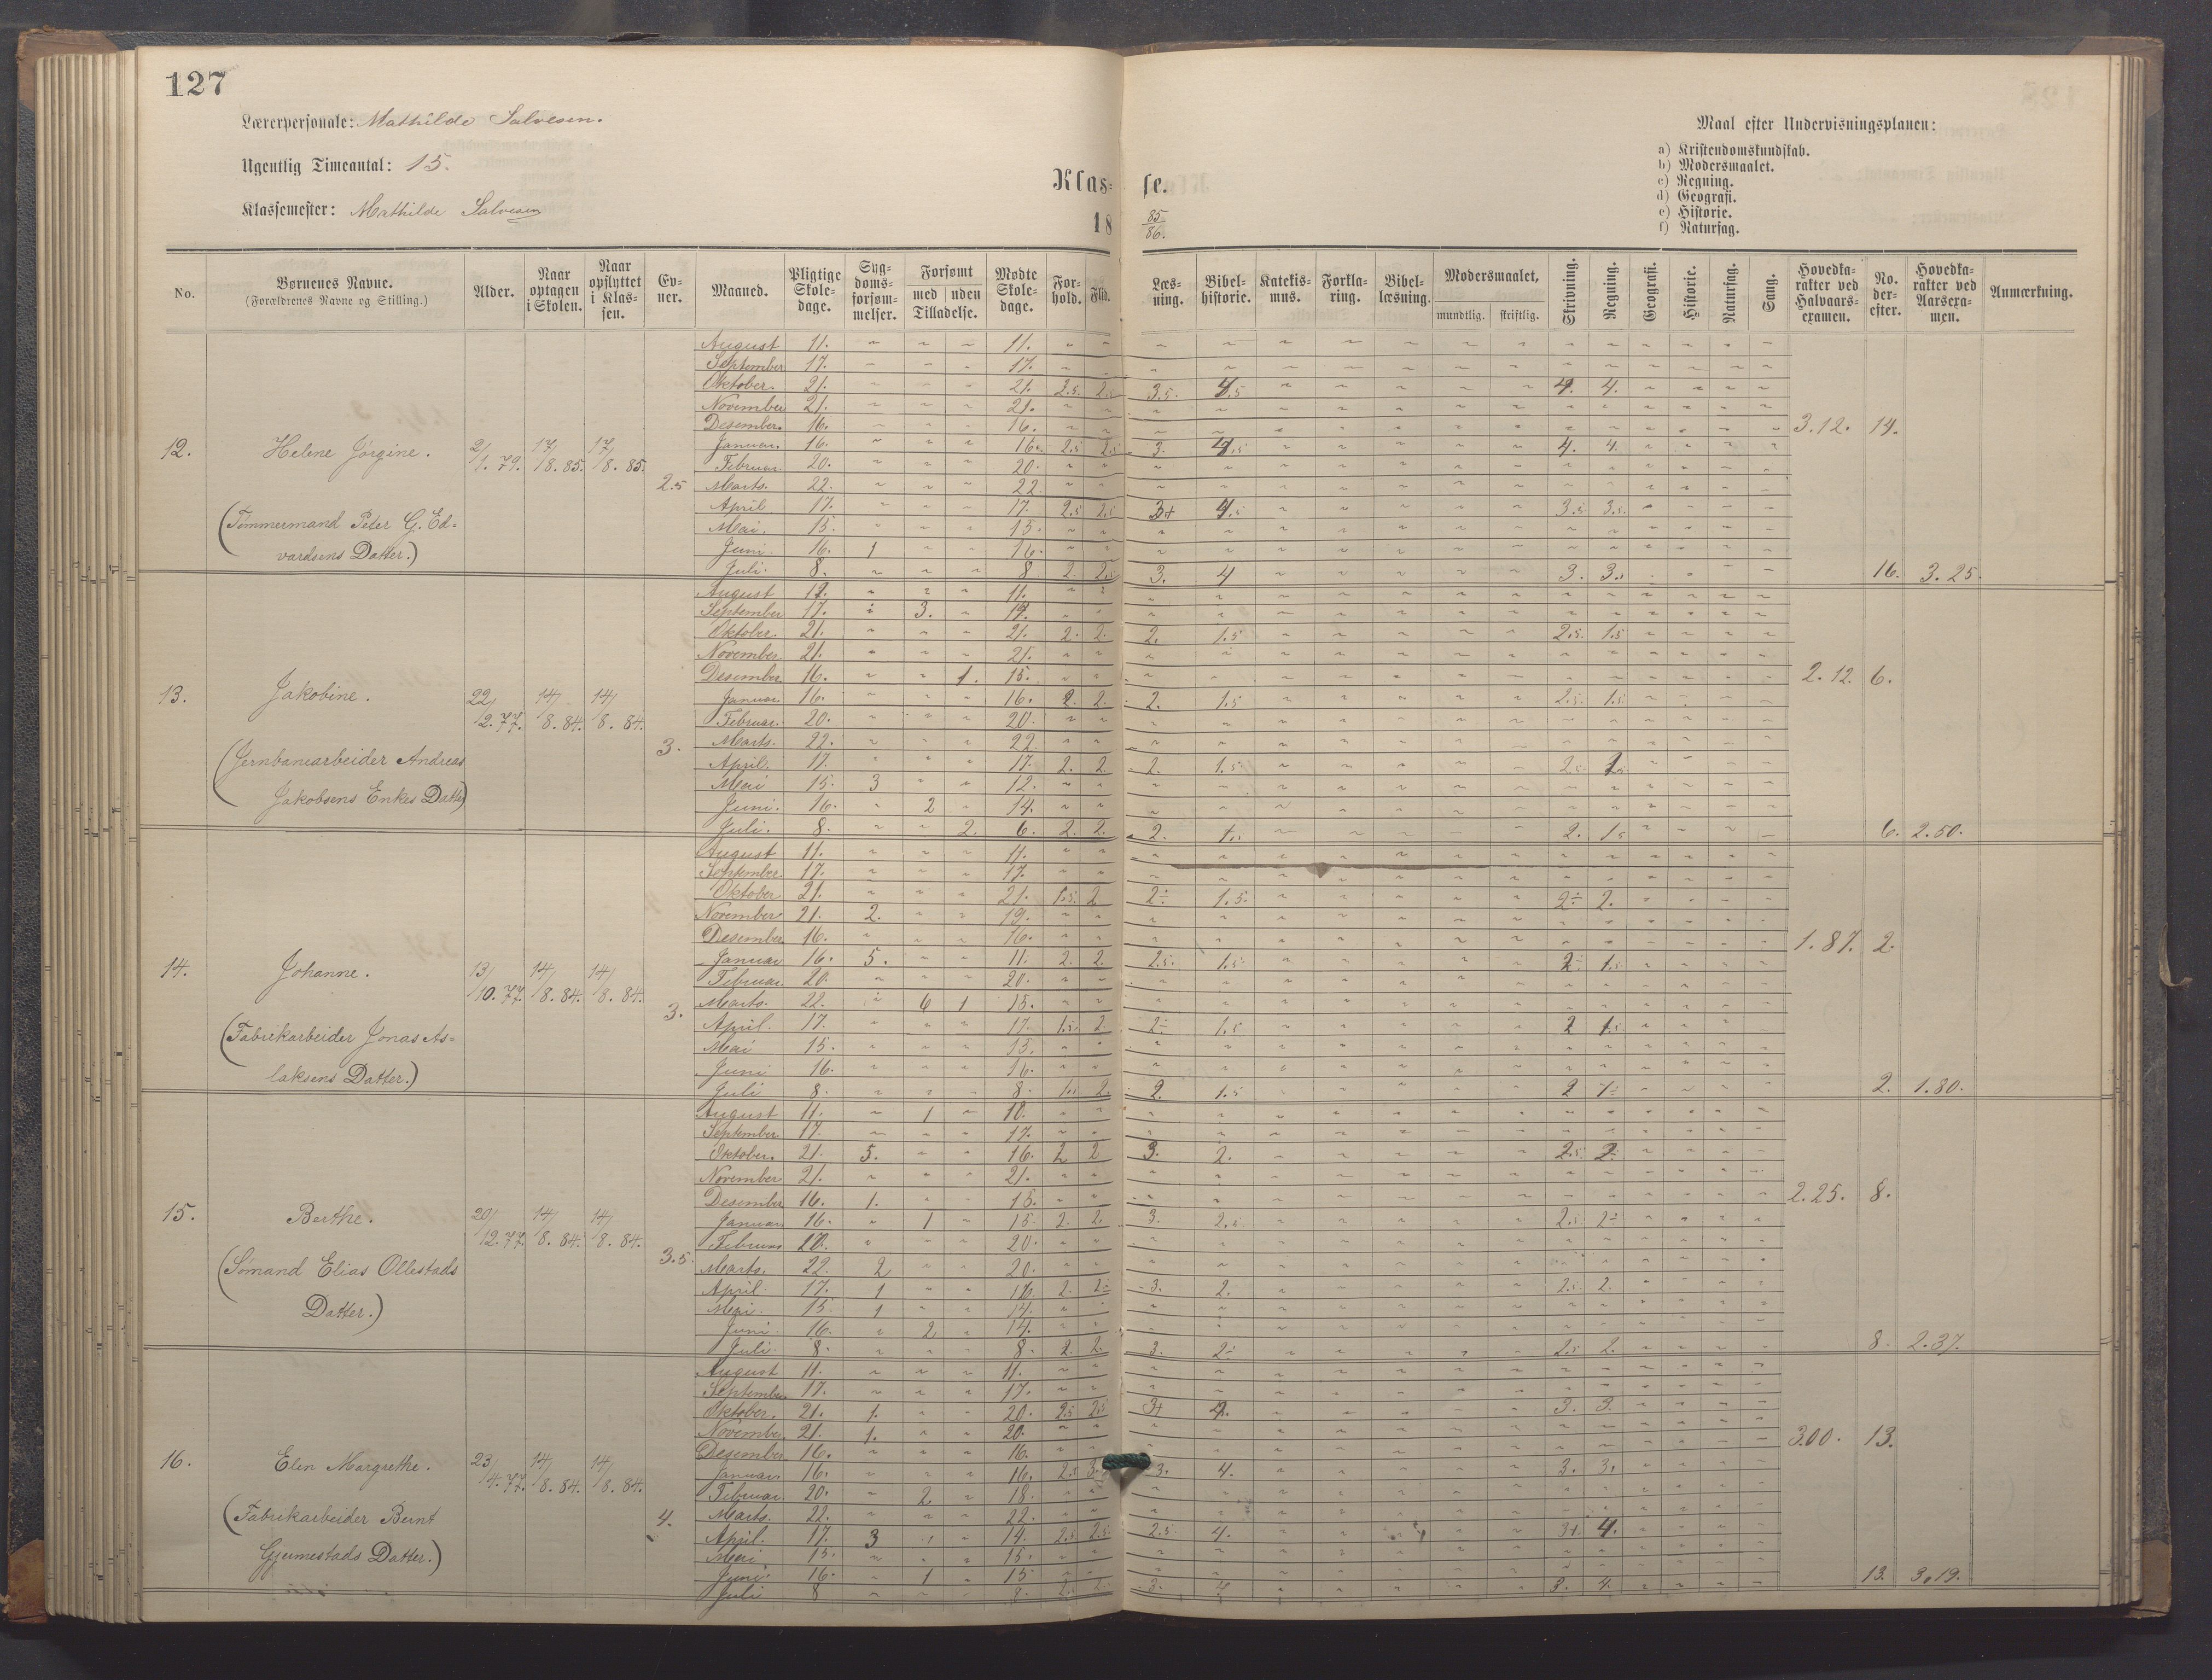 127
Lærerpersonale: Mathilde Salvesen.
Ugentlig Timeantal: 15.
Klassemester: Mathilde Salvesen
Klas- se.
18 85/86.
Maal efter Undervisningsplanen:
a) Kristendomskundskab.
b) Modersmaalet.
c) Regning.
d) Geografi.
e) Historie.
f) Naturfag.
No. Børnenes Navne. (Forældrenes Navne og Stilling.) Alder. Naar optagen i Skolen. Naar opflyttet i Klassen. Evner. Maaned. Pligtige Skoledage. Sygdomsforsømmelser. Forsømt med uden Tilladelse. Mødte Skoledage. Forhold. Flid. Læsning. Bibelhistorie. Katekismus. Forklaring. Bibellæsning. Modersmaalet, mundtlig. skriftlig. Skrivning. Regning. Geografi. Historie. Naturfag. Sang. Hovedkarakter ved Halvaarsexamen. No. derefter. Hovedkarakter ved Aarsexamen. Anmærkning.
12. Helene Jørgine. 2/1. 79. 17/8. 85. 17/8. 85. 2.5
(Tømmermand Peter G. Ed=
vardsens Datter.)
August 11. 11.
September 17. 17.
Oktober. 21. 21. 2.5. 2.5 3.5. 4.5 4. 4.
November 21. 21.
Desember. 16. 16. 3.12. 14.
Januar. 16. 16. 2.5 2.5 3. 4.5 4. 4.
Februar. 20. 20.
Marts. 22. 22.
April. 17. 17. 2.5 2.5 3+ 4.5 3.5 3.5.
Mai. 15. 15.
Juni. 16. 1 16.
Juli. 8. 8 2. 2.5 3. 4 3. 3. 16. 3.25.
13. Jakobine. 22/2. 77. 14/8. 84. 14/8. 84. 3.
(Jernbanearbeider Andreas
Jakobsens Enkes Datter)
August 11. 11.
September 17. 3. 17.
Oktober. 21. 21. 2. 2. 2. 1.5 2.5. 1.5
November. 21. 21.
Desember 16. 1. 15. 2.12. 6.
Januar. 16. 16. 2. 2. 2. 1.5 2.5. 1.5.
Februar. 20. 20.
Marts. 22. 22.
April. 17. 17. 2. 2 2. 1.5
Mai 15. 3 12.
Juni. 16. 2 14.
Juli. 8. 2. 6. 2. 2. 2. 2. 1.5 6. 2.50.
14. Johanne. 13/10. 77. 14/8. 84. 14/8. 84. 3.
(Fabrikarbeider Jonas As=
laksens Datter.)
August 11. 11.
September. 17. 17.
Oktober 21. 21. 1.5. 2 2÷ 1.5. 2÷ 2.
November 21. 2. 19.
Desember. 16. 16. 1.87. 2.
Januar 16. 5. 11. 2. 2. 2.5. 1.5 2÷ 1.5
Februar. 20. 20.
Marts. 22. 6 1 15.
April. 17. 17. 1.5. 2. 2÷ 1.5 2 1.5
Mai 15. 15.
Juni 16. 16.
Juli 8. 8. 2. 2. 1.5 2 1÷ 2. 1.80.
15. Berthe. 20/12. 77. 14/8. 84. 14/8. 84. 3.5.
(Sømand Elias Ollestads
Datter.)
August 11. 1 10.
September. 17. 17.
Oktober. 21. 5. 16. 2 2 3. 2. 2.5 2.
November 21. 21.
Desember 16. 1. 15. 2.25. 8.
Januar 16. 1 15. 2. 2. 3. 2.5 2.5 2÷
Februar 20. 20.
Marts. 22. 2 20.
April. 17. 1 16. 2. 2÷ 3. 2. 2.5 2.
Mai. 15. 1 14.
Juni. 16. 2 14.
Juli. 8. 8. 2. 2. 3. 2÷ 2.5 2. 8. 2.37.
16. Elen Margrethe. 23/4. 77. 14/8. 84. 14/8. 84. 4.
(Fabrikarbeider Bernt
Gjemestads Datter.)
August 11. 11.
September. 17. 17.
Oktober. 21. 1. 20. 2.5 2.5 3+ 4. 3. 3.
November. 21. 1. 20.
Desember 16. 16. 3.00. 13.
Januar. 16. 16. 2.5 3. 3. 4. 3. 3.
Februar. 20. 2 18.
Marts. 22. 22.
April. 17. 3 14. 2.5 2.5 2.5. 4. 3+ 4.
Mai. 15. 15.
Juni. 16. 1 15
Juli 8 8. 2. 2. 3. 4 3. 4. 13. 3.19.